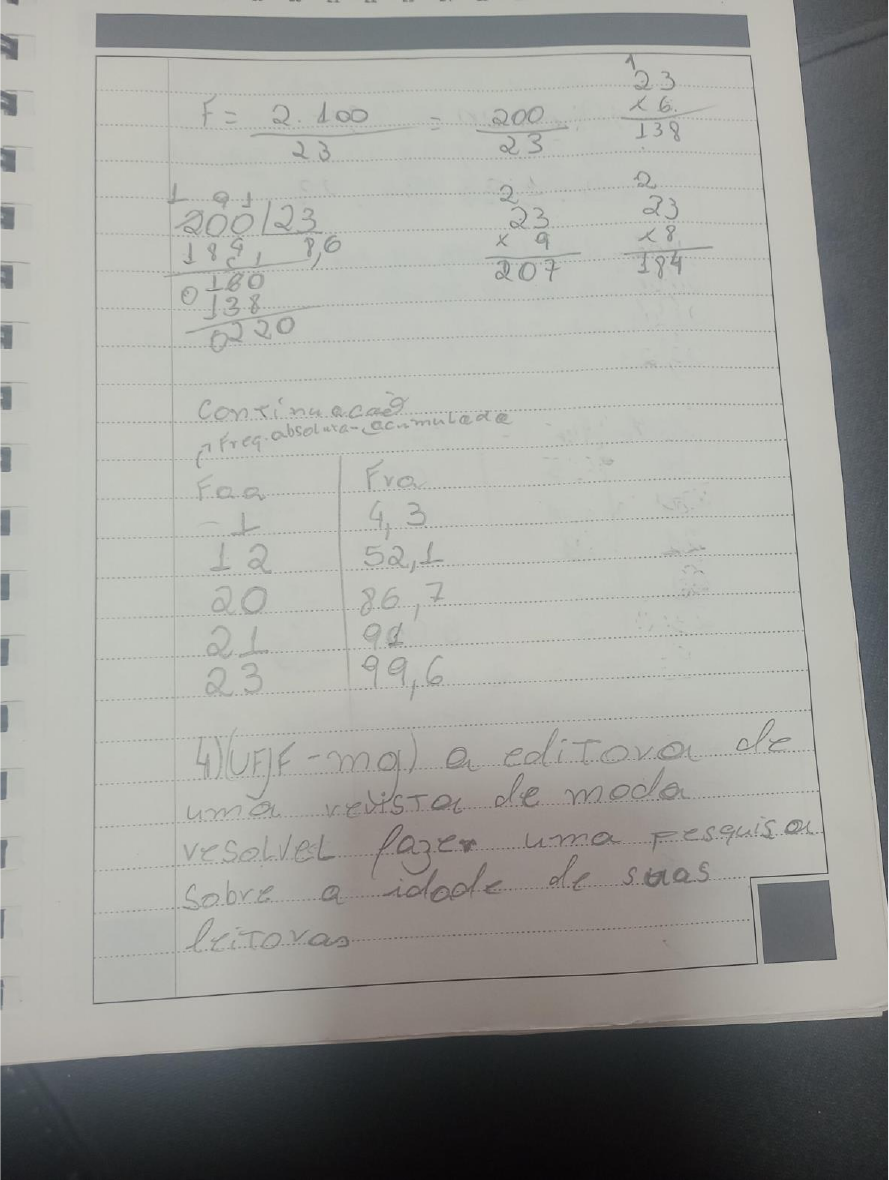 1
23
F = 2.100 = 200 x 6
23 23 138
1 9 1 2 2
200/23 23 23
184, 8,6 x 9 x 8
0160 207 184
138
0220
Continuacaõ
Freq.absoluta-acumulada
Faa Fra
1 4,3
12 52,1
20 86,7
21 91
23 99,6
4)(UFJF-mg) a editora de
uma revista de moda
resolvel fazer uma pesquisa
sobre a idade de suas
leitoras